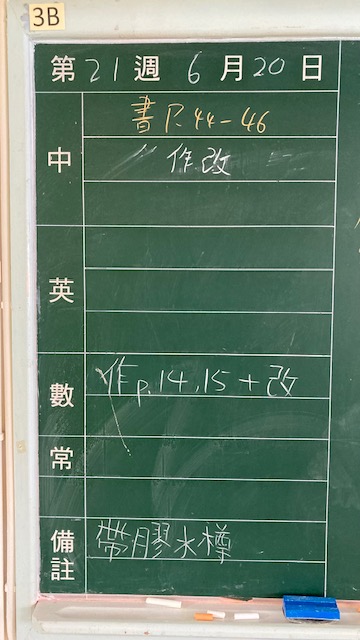 3B
第21週 6月20日
中
書P.44-46
〃作改
英
數
作p.14,15+改
常
備註
帶膠水樽